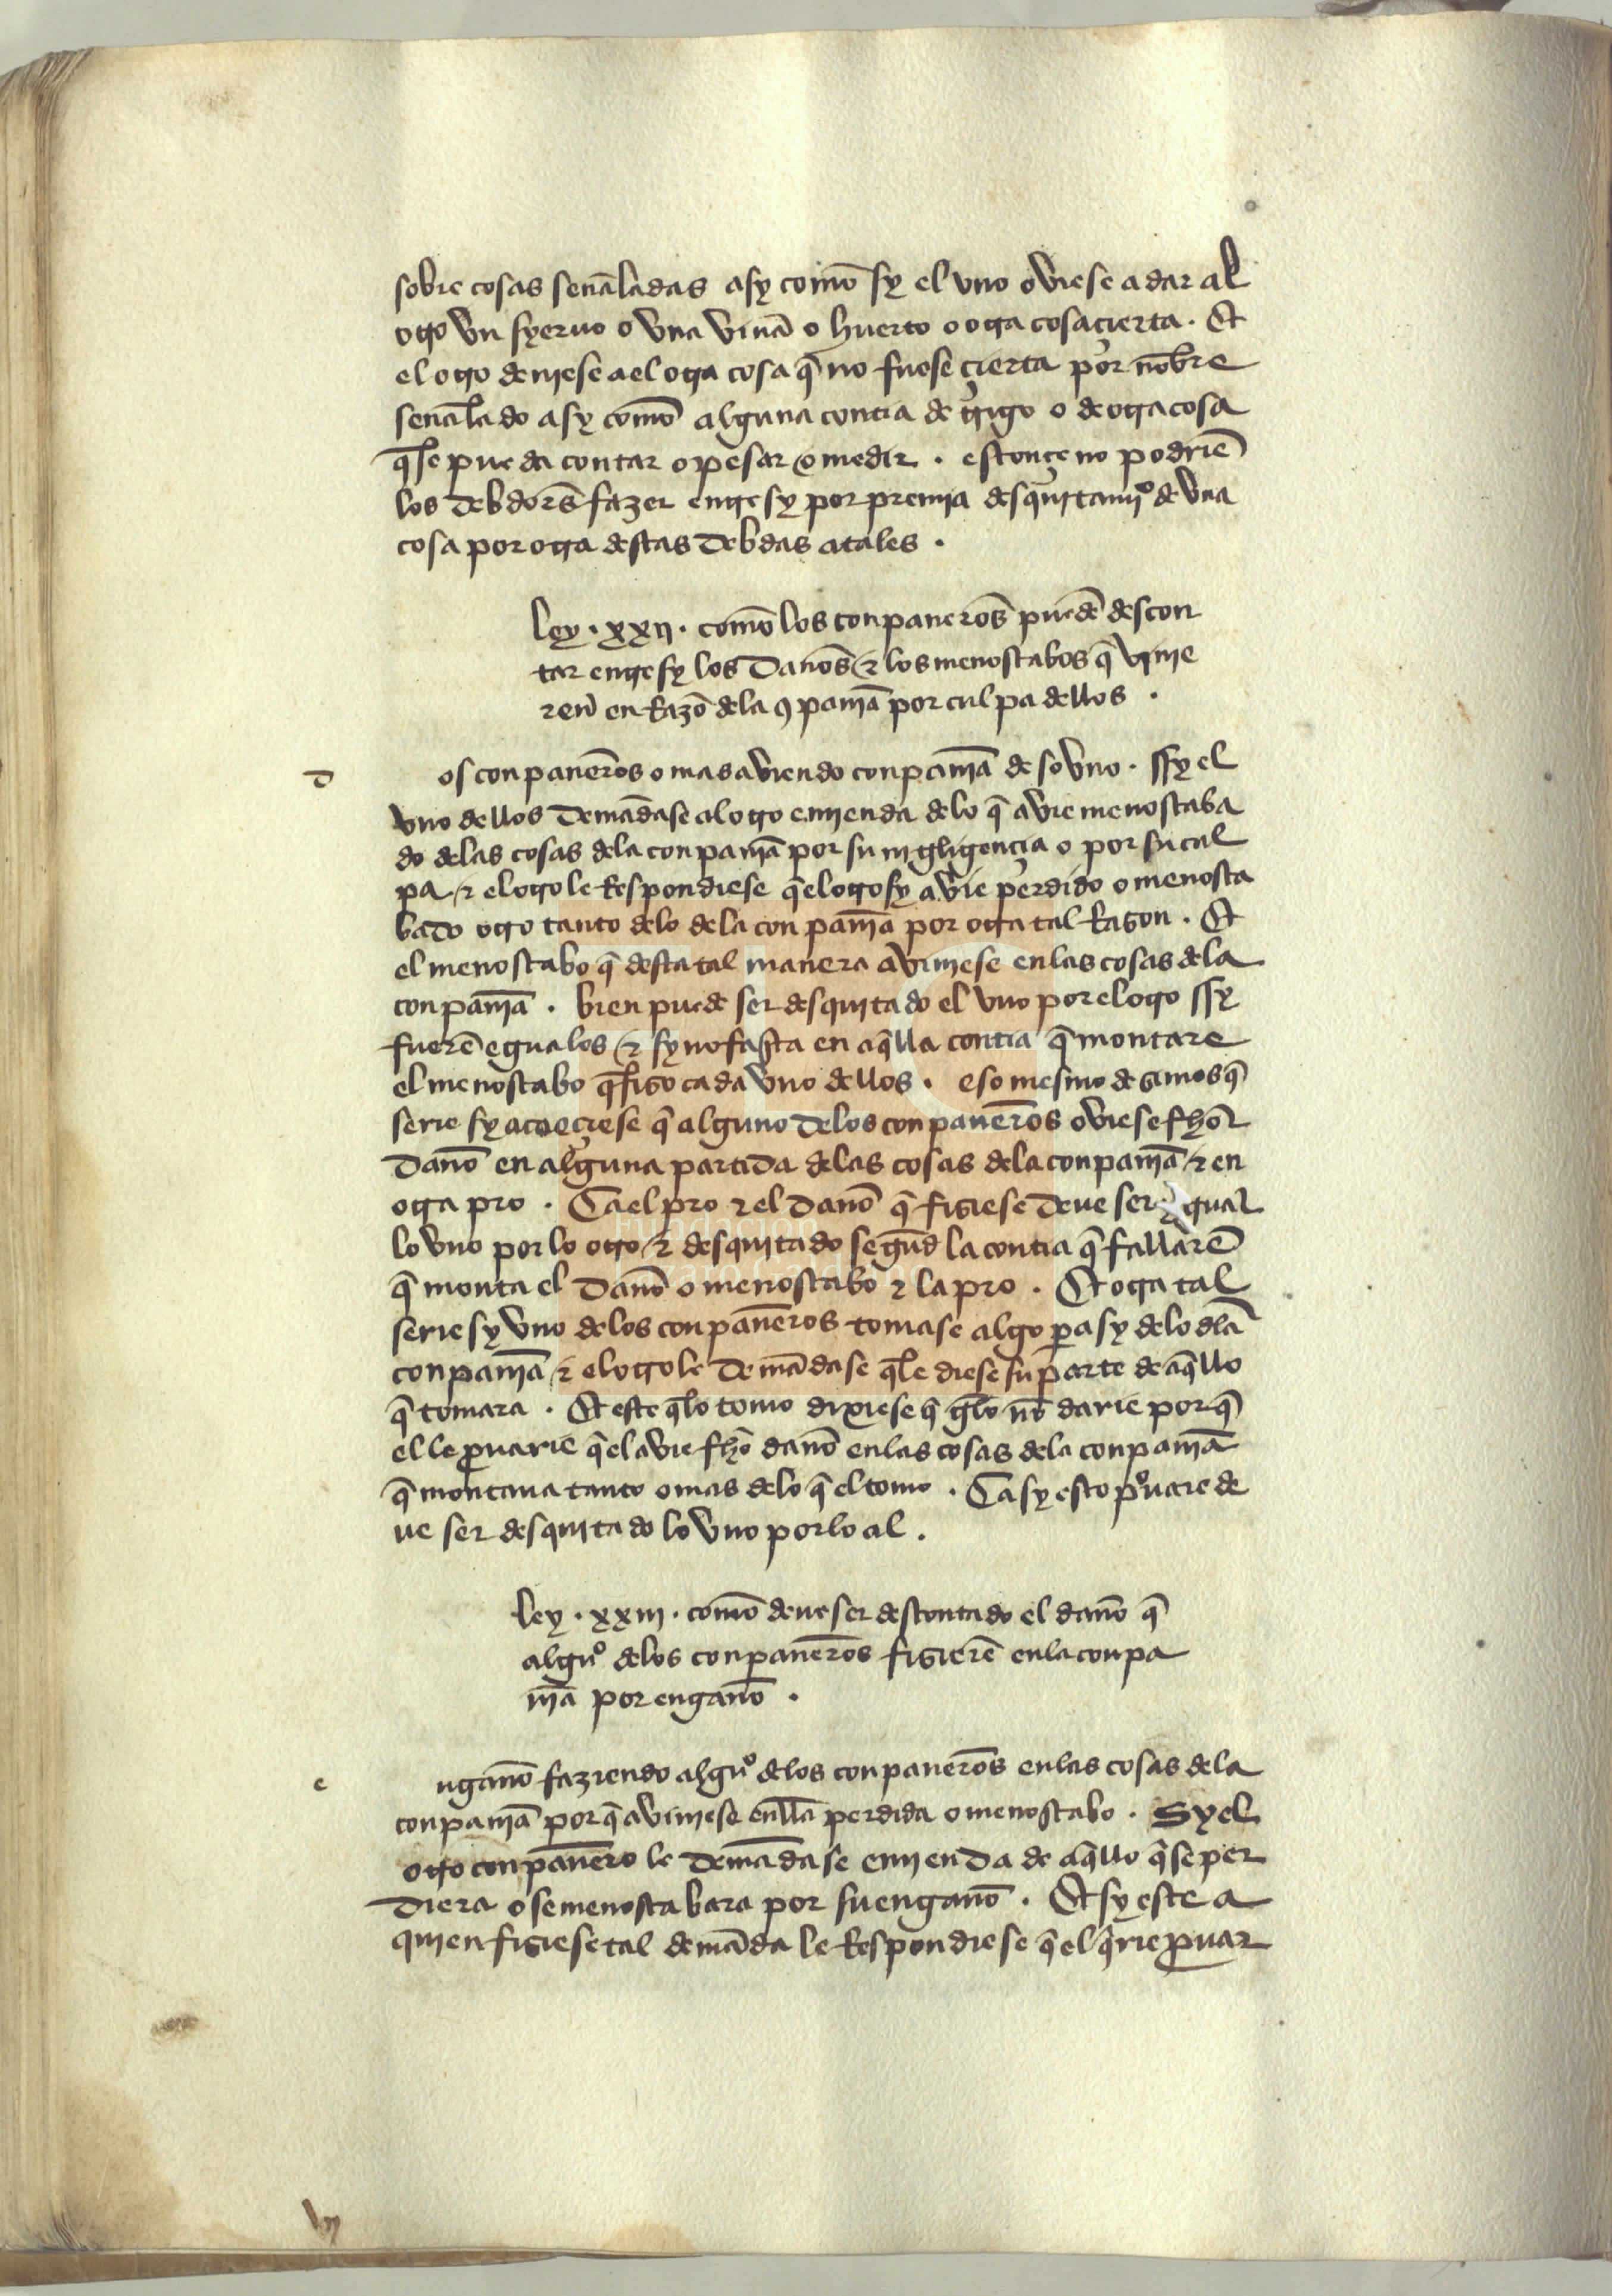 sobre cosas señaladas asy commo sy el vno oviese a dar al
otro vn syeruo o vna viña o huerto o otra cosa çierta . Et
el otro deuiese a el otra cosa q̃ no fuese çierta por nõbre
señalado asy commo alguna contia de trigo o de otra cosa
q̃ se pueda contar o pesar o medir . estonçe no podriẽ
los debdores fazer entre sy por premia desquitamiº de vna
cosa por otra destas debdas atales .
ley . xxij . commo los conpañeros puedẽ descon
tar entre sy los daños ⁊ los menoscabos q̃ vinie
ren en Razõ dela ꝯpañia por culpa dellos .
d os conpañeros o mas aviendo conpañia de so vno . ssy el
vno dellos demãdase al otro emienda delo q̃ avie menoscaba
do delas cosas dela conpañia por su nigligençia o por su cul
pa ⁊ el otro le Respondiese q̃ el otrosy avie perdido o menosca
bado otro tanto delo dela conpañia por otra tal Rason . Et
el menoscabo q̃ desta tal manera aviniese en las cosas dela
conpañia . bien puede ser desquitado el vno por el otro ssy
fuerẽ eguales ⁊ sy no fasta en aq̃lla contia q̃ montare
el menoscabo q̃ fiso cada vno dellos . eso mesmo desimos q̃
serie sy acaeçiese q̃ alguno delos conpañeros oviese fho
daño en alguna partida delas cosas dela conpañia ⁊ en
otra pro . Ca el pro ⁊ el daño q̃ fisiese deue ser ygual
lo vno por lo otro ⁊ desquitado segũd la contia q̃ fallarẽ
q̃ monta el daño o menoscabo ⁊ la pro . Et otra tal
serie sy vno delos conpañeros tomase algo pa sy delo dla
conpañia ⁊ el otro le demãdase q̃ le diese su parte de aq̃llo
q̃ tomara . Et este q̃ lo tomo dixiese q̃ gelo nõ darie porq̃
el le ꝓuarie q̃ el avie fho daño en las cosas dela conpañia
q̃ montaua tanto o mas delo q̃ el tomo . Ca sy esto pºuare de
ue ser desquitado lo vno por lo al .
ley . xxiij . commo deue ser descontado el daño q̃
algũº delos conpañeros fisierẽ en la conpa
ñia por engaño .
e ngaño faziendo algũº delos conpañeros en las cosas dela
conpañia por q̃ aviniese enlla perdida o menoscabo . Sy el
otro conpañero le demãdase emienda de aq̃llo q̃ se per
diera o se menoscabara por su engaño . Et sy este a
quien fisiese tal demãda le Respondiese q̃ el q̃rie ꝓuar